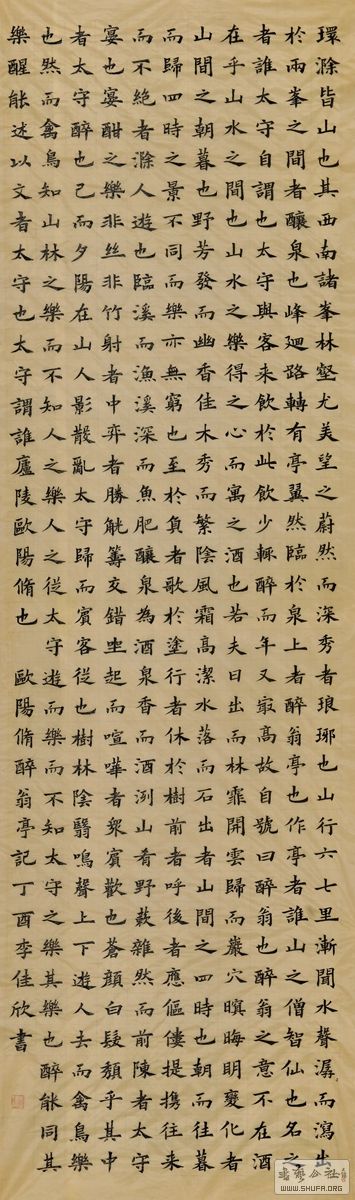 環滁皆山也其西南諸峯林壑尤美望之蔚然而深秀者琅琊也山行六七里漸聞水聲潺而瀉出
於兩峯之間者釀泉也峰廻路轉有亭翼然臨於泉上者醉翁亭也作亭者誰山之僧智仙也名之
者誰太守自謂也太守與客來飲於此飲少輒醉而年又冣高故自號曰醉翁也醉翁之意不在酒
在乎山水之間也山水之樂得之心而寓之酒也若夫日出而林霏開雲歸而巖穴暝晦明變化者
山間之朝暮也野芳發而幽香佳木秀而繁陰風霜高潔水落而石出者山間之四時也朝而往暮
而歸四時之景不同而樂亦無窮也至於負者歌於塗行者休於樹前者呼後者應傴僂提携往来
而不絶者滁人遊也臨溪而漁溪深而魚肥釀泉為酒泉香而酒洌山肴野蔌雜然而前陳者太守
宴也宴酣之樂非丝非竹射者中弈者勝觥籌交錯坐起而喧嘩者衆賓歡也蒼顔白髮頽乎其中
者太守醉也已而夕陽在山人影散亂太守歸而賓客從也樹林陰翳鳴聲上下遊人去而禽鳥樂
也然而禽鳥知山林之樂而不知人之樂人之從太守遊而樂而不知太守之樂其樂也醉能同其
樂醒能述以文者太守也太守謂誰廬陵歐陽脩也 歐陽脩醉翁亭記丁酉李佳欣書
WWW.SHUFA.ORG